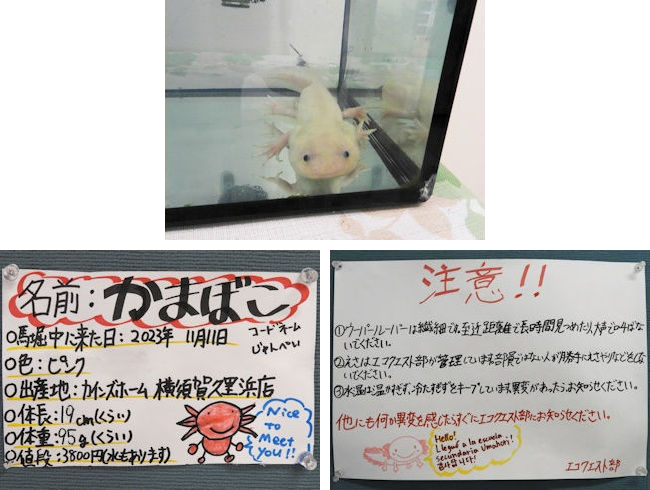 名前：かまぼこ
コードネーム
じゃんぺい
○馬堀中に来た日：2023年 11月11日
○色：ピンク
○出産地：カインズホーム 横須賀久里浜店
○体長：19cm(くらい)
○体重：95g(くらい)
○値段：3800円(水もあります)
Nice
to
Meet
you!!
注意!!
①ウーパールーパーは繊細です。至近距離で長時間見つめたり、大声で叫ばな
いでください。
②えさはエコクエスト部が管理しています。部員ではない人が勝手にえさやりなどをしな
いでください。
③水温は温かすぎず、冷たすぎずをキープしています。異変があったら、お知らせください。
他にも何か異変を感じたらすぐにエコクエスト部にお知らせください。
Hello!
Llegué a la escuela
secundaria Umahori!
감사합니다!
エコクエスト部